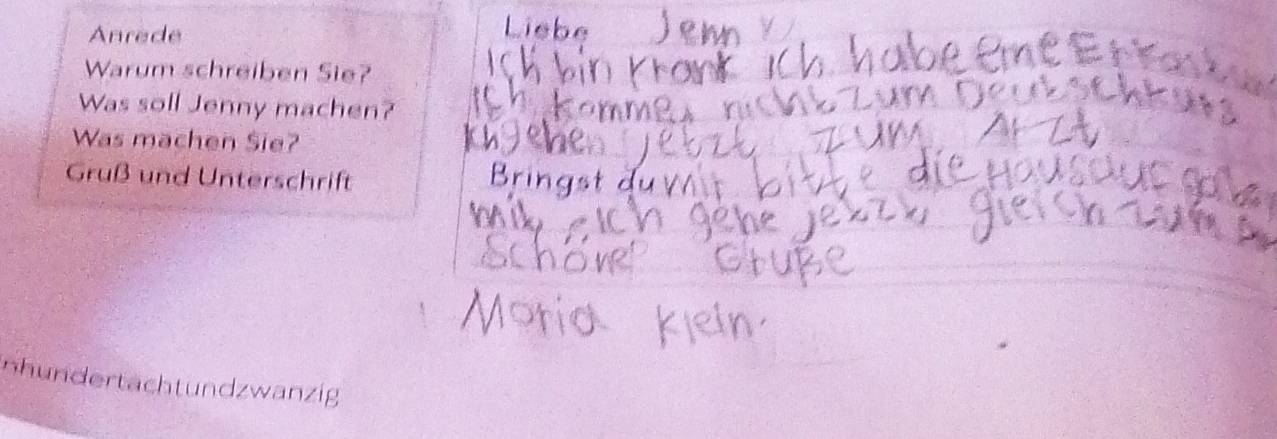 Anrede
Warum schreiben Sie?
Was soll Jenny machen?
Was machen Sie?
Gruß und Unterschrift
Liebe Jenny
Ich bin krank ich habe eine
Ich komme nicht zum
Ich gehen jetzt zum Arzt
Bringst du mir bitte die Hausaufgaben
mit, ich gehe jetzt gleich zum
Schöne Grüße
Maria Klein.
nhundertachtundzwanzig